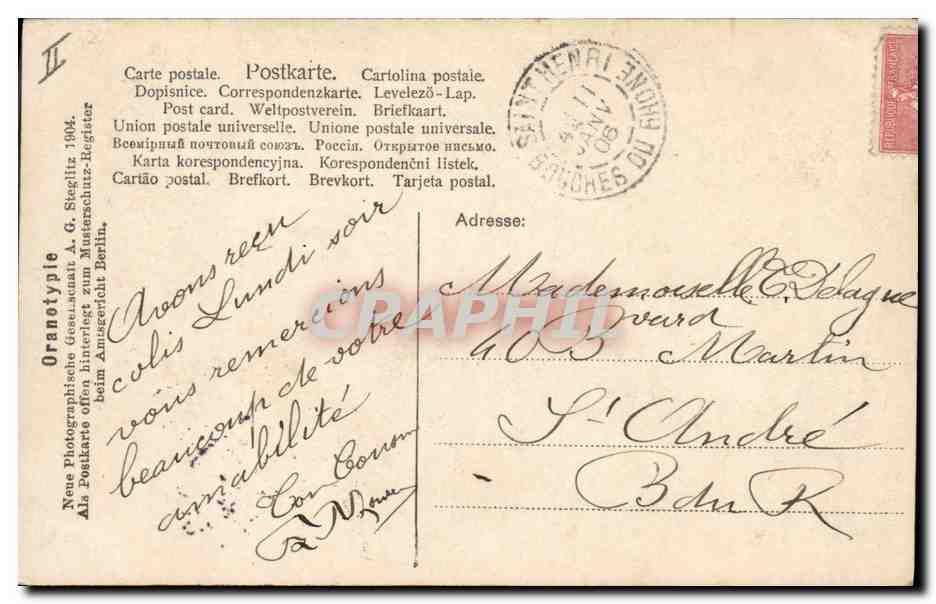 II
Carte postale. Postkarte. Cartolina postale.
Dopisnice. Correspondenzkarte. Levelező-Lap.
Post card. Weltpostverein. Briefkaart.
Union postale universelle. Unione postale universale.
Всемірный почтовый союзъ. Россія. Открытое письмо.
Karta korespondencyjna. Korespondenční listek.
Cartão postal. Brefkort. Brevkort. Tarjeta postal.
Oranotypie
Neue Photographische Gesellschaft A. G. Steglitz 1904.
Als Postkarte offen hinterlegt zum Musterschutz-Register
beim Amtsgericht Berlin.
SAINT HENRI
11
JANV
06
BOUCHES DU RHONE
REPUBLIQUE FRANÇAISE
Avons reçu
colis Lundi soir
vous remercions
beaucoup de votre
amabilité
Ton Cousin
Adresse:
Mademoiselle E. Delague
40 Bvard Martin
St André
B du R
CPAPHIL